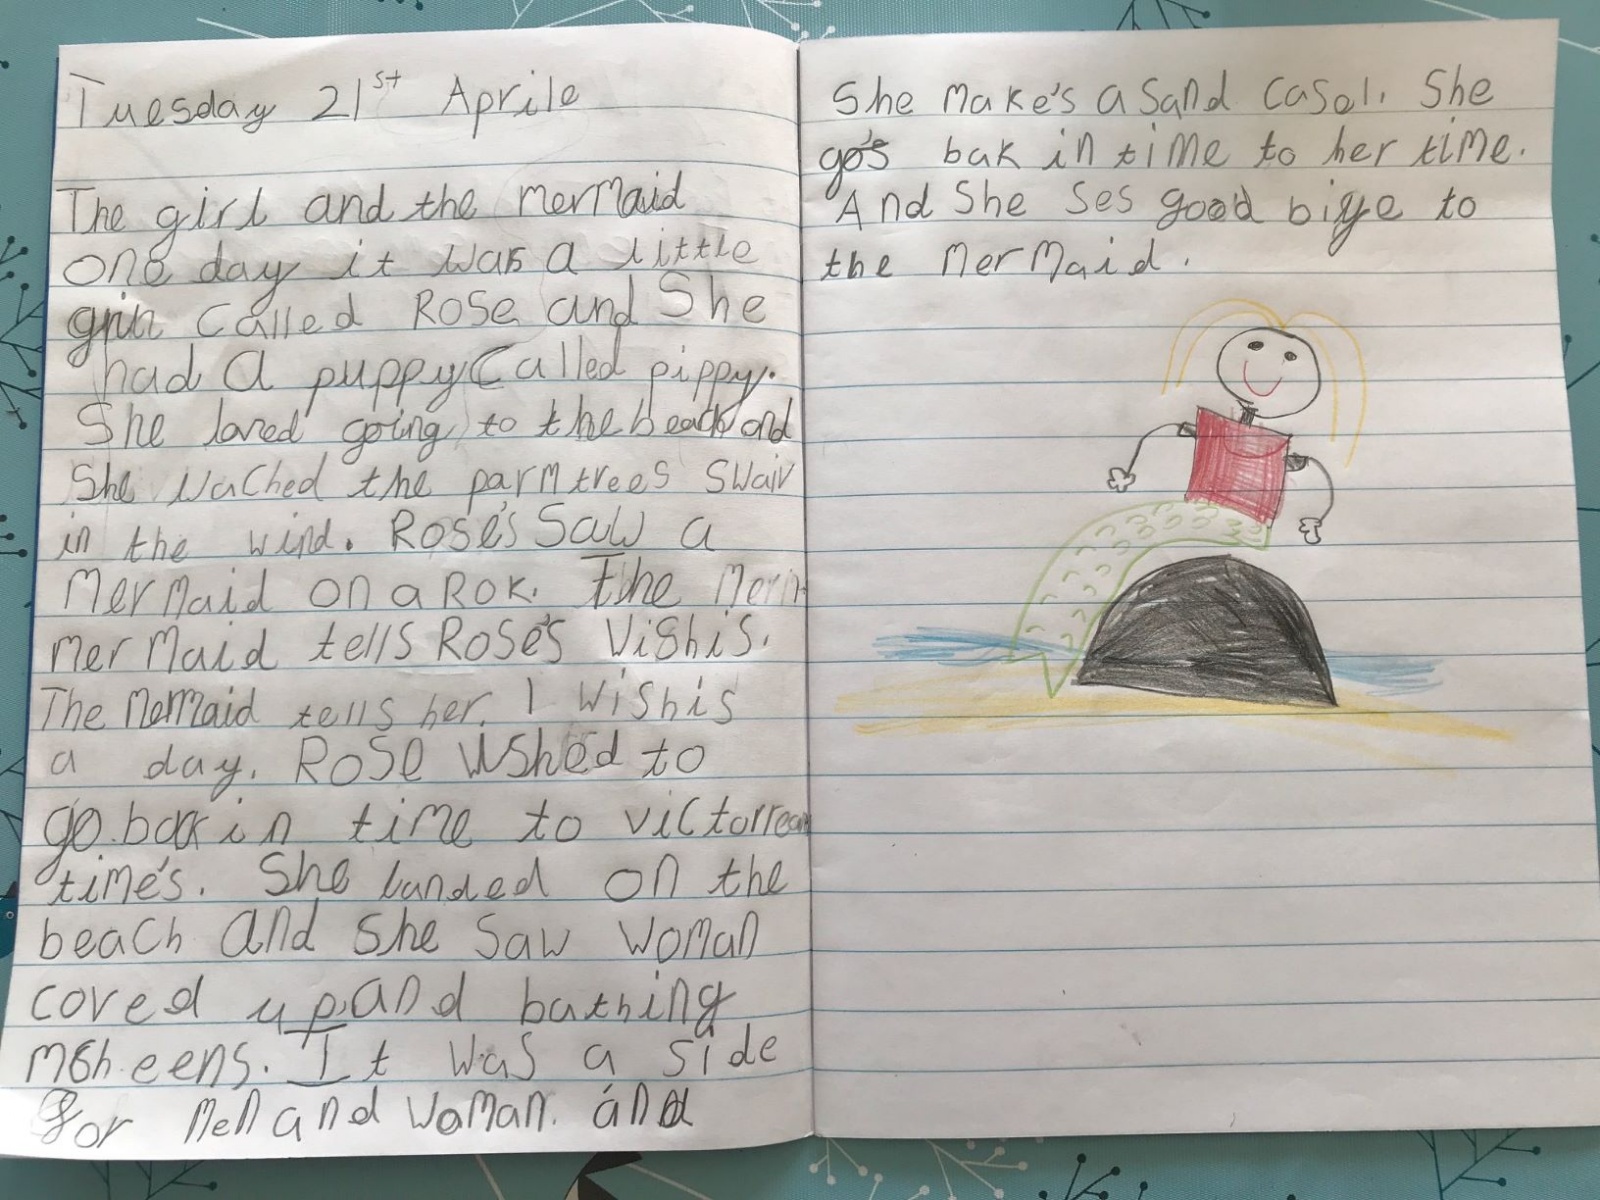 Tuesday 21st Aprile
The girl and the mermaid
one day it was a little
girl called Rose and She
had a puppy Called pippy.
She loved going to the beach and
She wached the parm trees swaiv
in the wind. Rose's Saw a
Mermaid on a Rok. The Merm
merMaid tells Rose's Vishis.
The Mermaid tells her. I wishis
a day. Rose wshed to
go back in time to victorrean
time's. She landed on the
beach and She Saw woman
coved up and bathing
msheens. It was a side
for Men and woman. and
She Make's a Sand Casol. She
go's bak in time to her time.
And She Ses good biye to
the MerMaid.